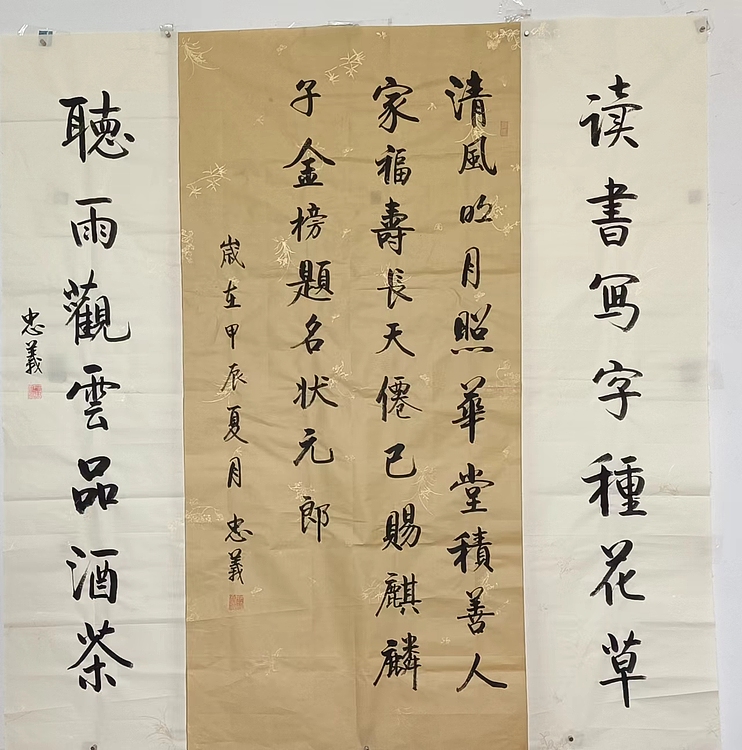 读书写字種花草
清風明月照華堂積善人
家福壽長天僊已賜麒麟
子金榜題名状元郎
歳在甲辰夏月 忠義
聽雨觀雲品酒茶
忠義